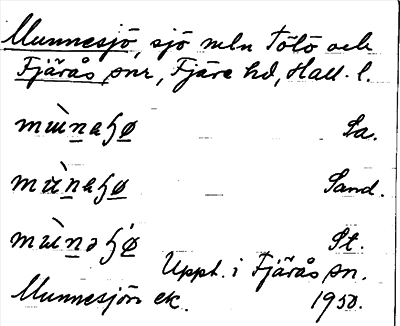 Munnesjö, sjö mln Tölö och
Fjärås snr, Fjäre hd, Hall. l.
mùnaɧø Sa.
mùnaɧø Sand.
mùnəɧø St.
Uppt. i Fjärås sn.
Munnesjön ek. 1950.